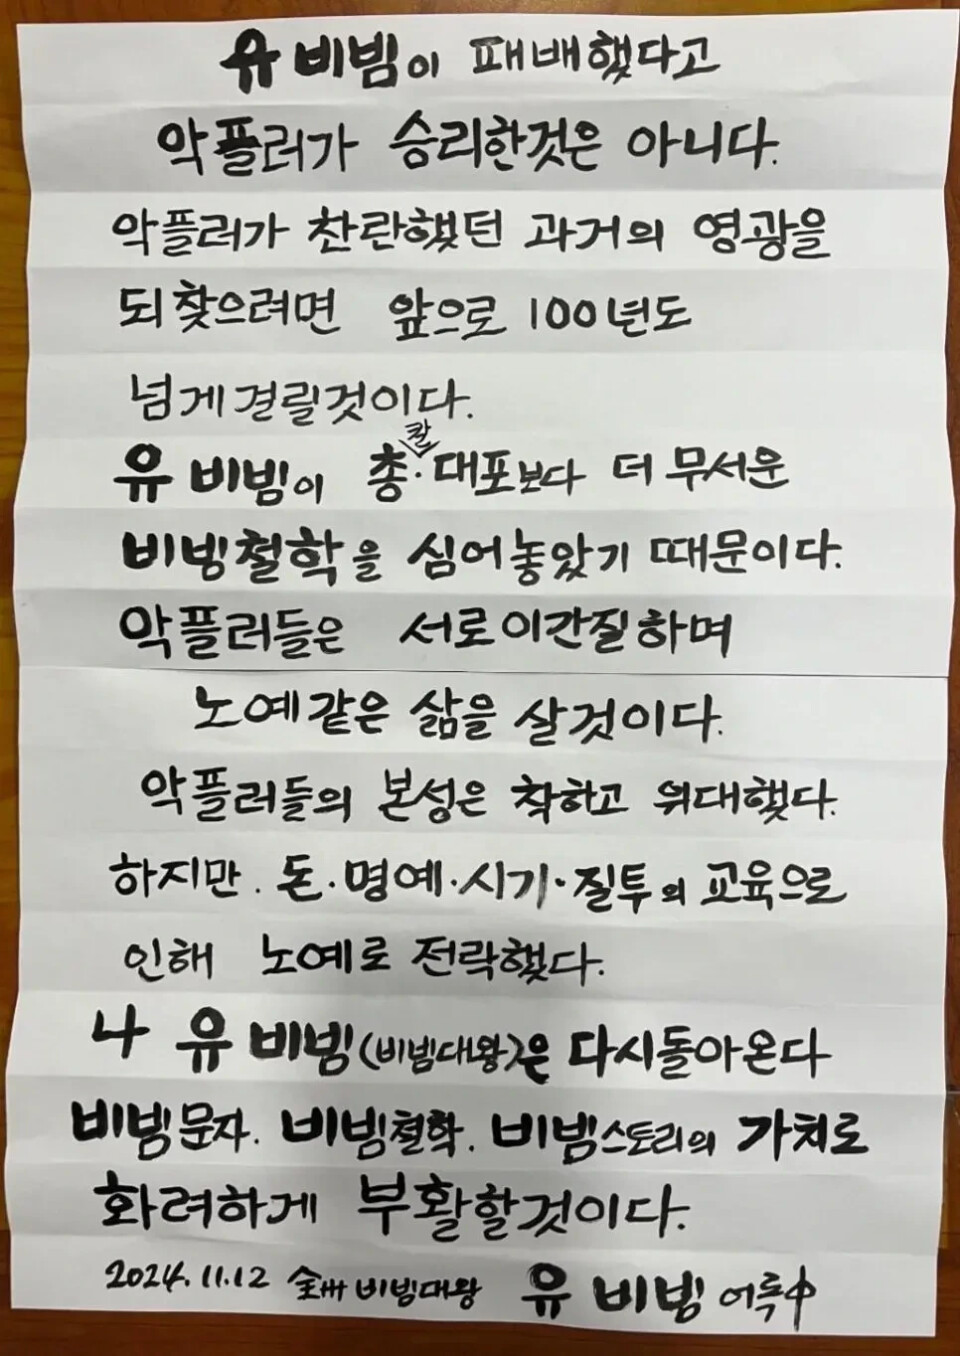 유비빔이 패배했다고
악플러가 승리한것은 아니다.
악플러가 찬란했던 과거의 영광을
되찾으려면 앞으로 100년도
넘게걸릴것이다.
칼
유 비빔이 총·대포보다 더 무서운
비빔철학을 심어놓았기 때문이다.
악플러들은 서로이간질하며
노예같은 삶을 살것이다.
악플러들의 본성은 착하고 위대했다.
하지만. 돈·명예·시기·질투의 교육으로
인해 노예로 전락했다.
나 유비빔(비빔대왕)은 다시돌아온다
비빔문자. 비빔철학. 비빔스토리의 가치로
화려하게 부활할것이다.
2024.11.12 全州 비빔대왕 유비빔 어록中